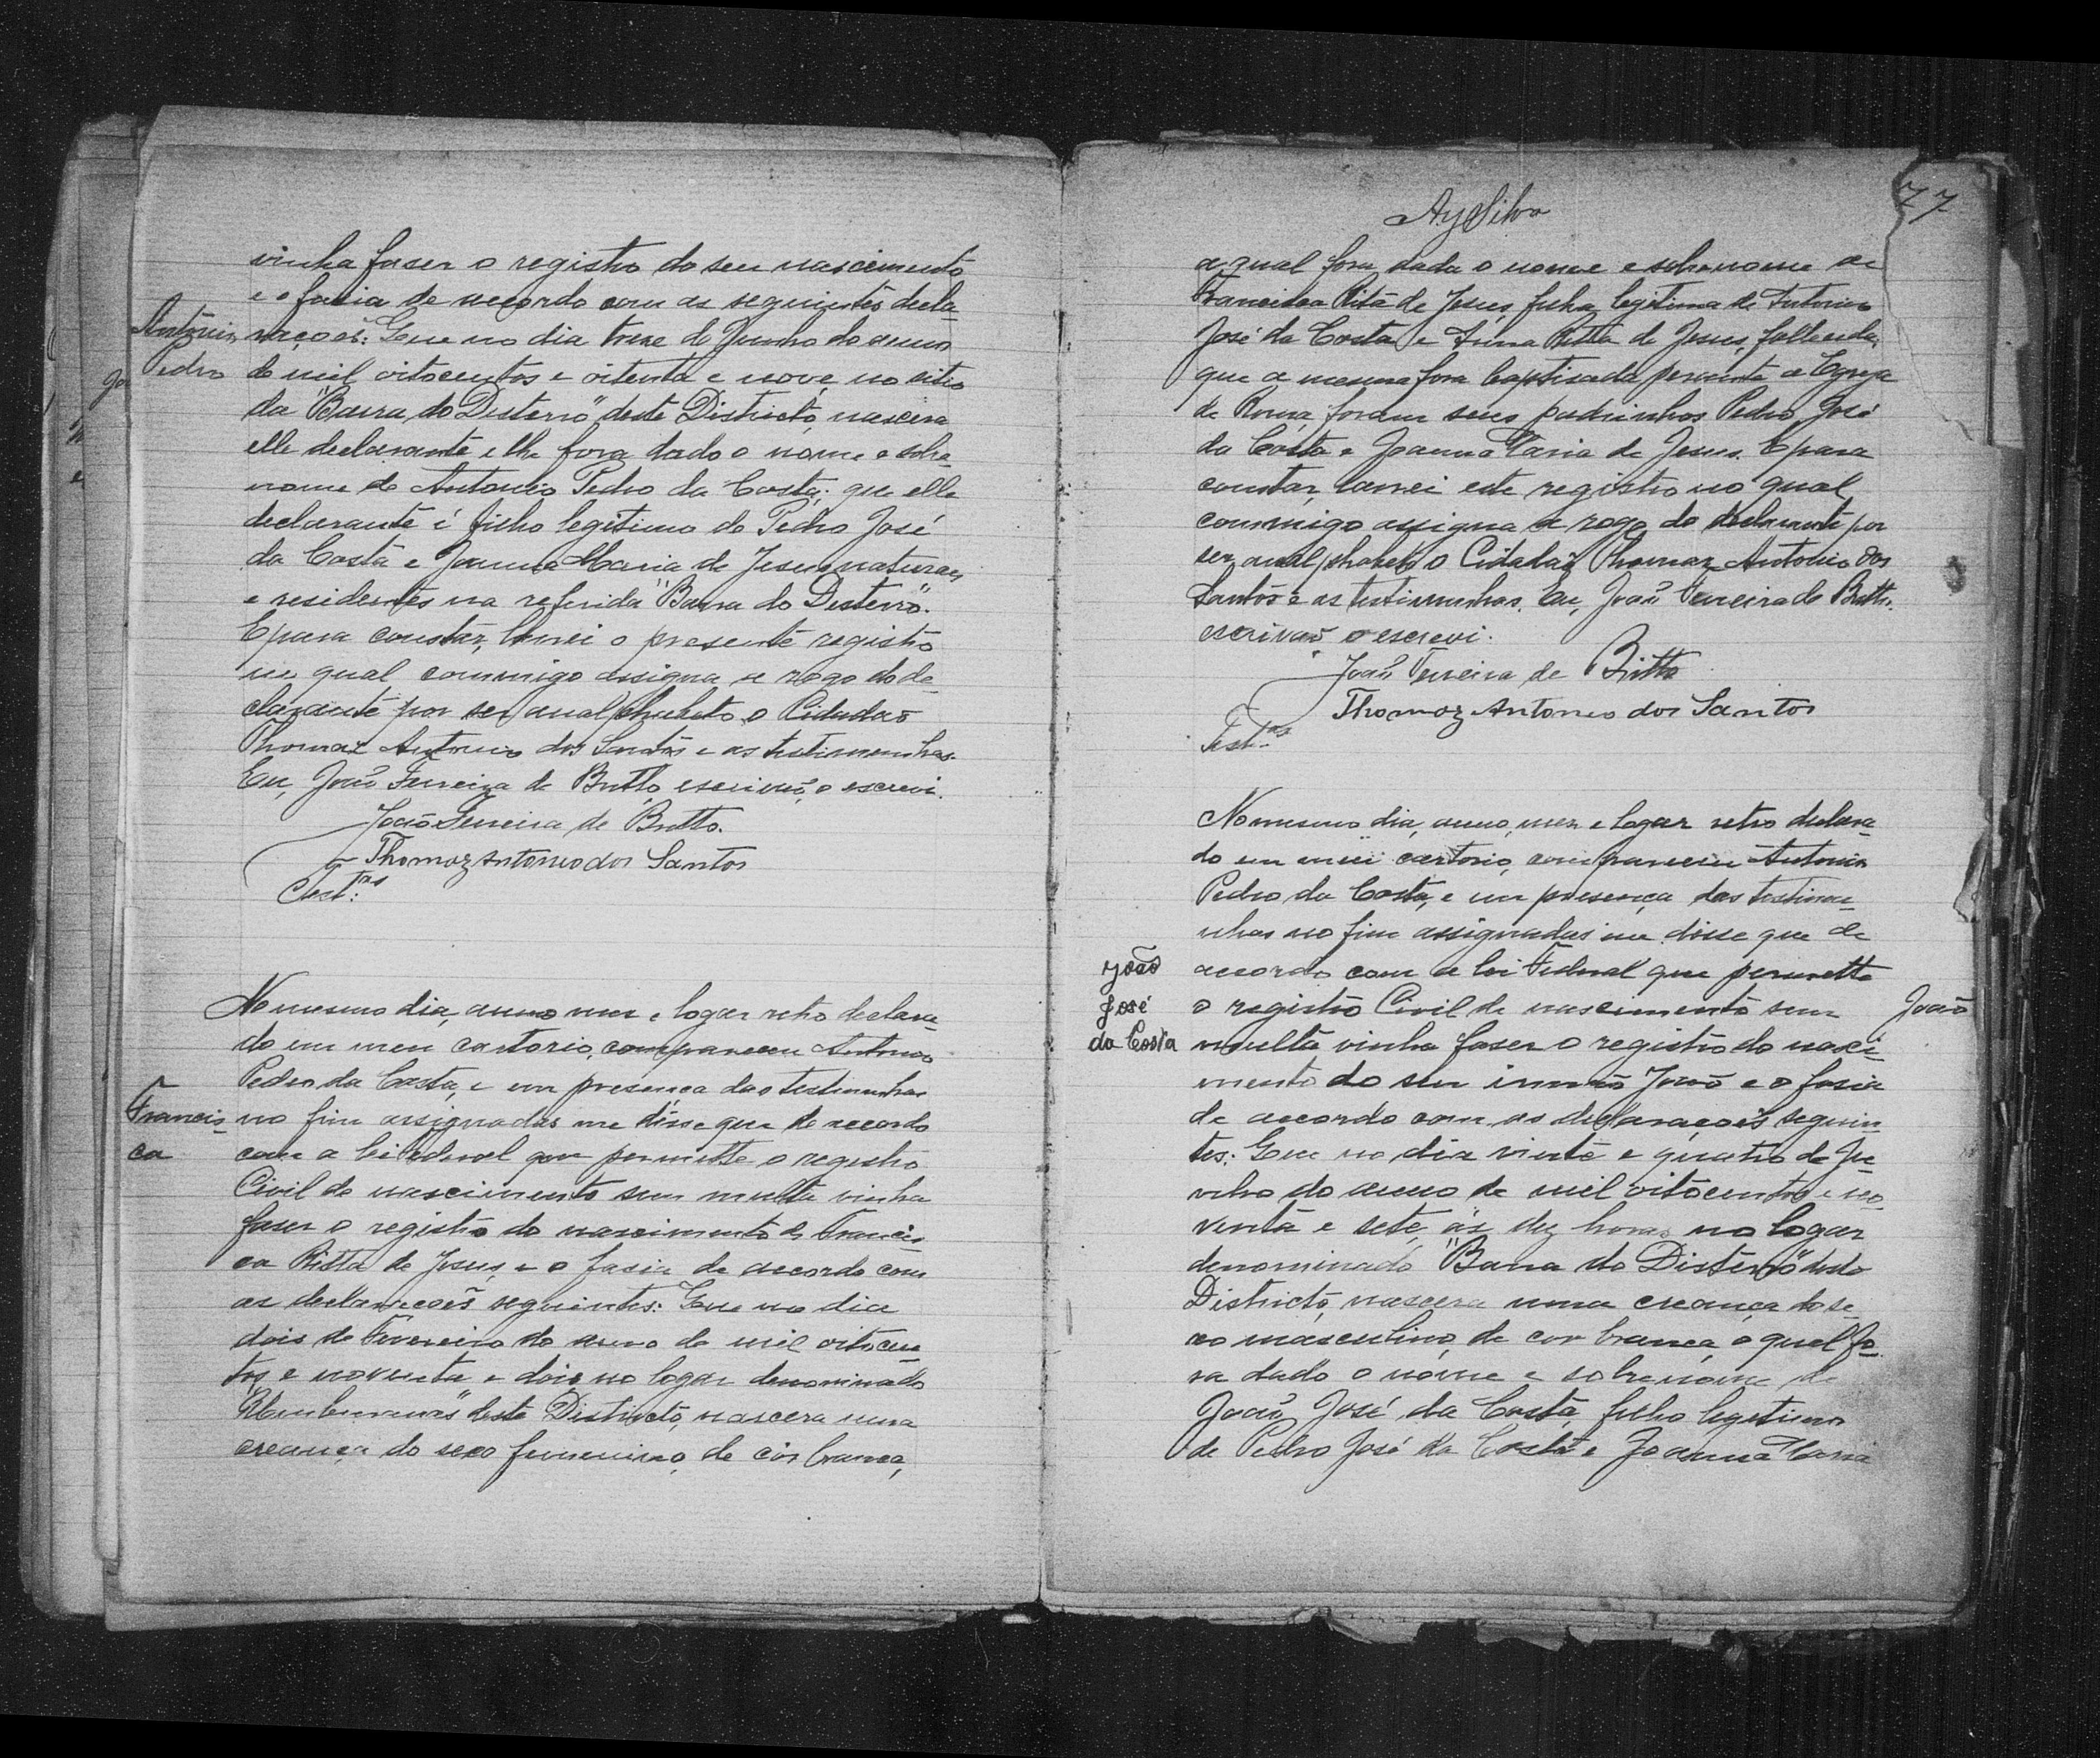 vinha faser o registro do seu nascimento
e o fasia de accordo com as seguintes decla-
Antonio
Pedro
rações: Que no dia treze de Junho do anno
de mil oitocentos e oitenta e nove, no sitio
da "Barra do Desterro" deste Districto, nascera
elle declarante e lhe fora dado o nome e sobre-
nome de Antonio Pedro da Costa; que elle
declarante é filho legitimo de Pedro José
da Costa e Joanna Maria de Jesus naturaes
e residentes na referida "Barra do Desterro".
E para constar, lavrei o presente registro
no qual commigo assigna a rogo do de-
clarante por ser analphabeto o Cidadão
Thomaz Antonio dos Santos e as testimunhas.
Eu, João Ferreira de Britto, escrivão, o escrevi.
João Ferreira de Britto.
Thomaz Antonio dos Santos
Test.as
No mesmo dia, anno mez e logar retro declara-
do em meu cartorio, compareceu Antonio
Pedro da Costa, e em presença das testimunhas
Francis-
ca
no fim assignadas me disse que de accordo
com a lei Federal que permitte o registro
Civil de nascimento sem multa vinha
faser o registro do nascimento de Francis-
ca Ritta de Jesus, e o fasia de accordo com
as declarações seguintes: Que no dia
dois de Fevereiro do anno de mil oitocen-
tos e noventa e dois no logar denominado
deste Districto, nascera uma
creança do sexo femenino, de côr branca,
77
AySilva
a qual fora dada o nome e sobrenome de
Francisca Rita de Jesus, filha legitima de Antonio
José da Costa e Anna Ritta de Jesus, fallecida,
que a mesma fora baptisada perante a Egreja
de Roma, foram seus padrinhos Pedro José
da Costa e Joanna Maria de Jesus. E para
constar, lavrei este registro no qual
commigo assigna a rogo do declarante por
ser analphabeto o Cidadão Thomaz Antonio dos
Santos e as testimunhas. Eu, João Ferreira de Britto,
escrivão o escrevi.
João Ferreira de Britto
Thomaz Antonio dos Santos
Test.as
No mesmo dia, anno, mez e logar retro declara-
do em meu cartorio, compareceu Antonio
Pedro da Costa, e em presença das testimu-
nhas no fim assignadas me disse que de
João
José
da Costa
accordo com a lei Federal que permette
o registro Civil de nascimento sem
João
multa, vinha faser o registro do nasci-
mento do seu irmão João e o fasia
de accordo com as declarações seguin-
tes: Que no dia vinte e quatro de Ju-
nho do anno de mil oitocentos e no-
venta e sete, ás dez horas no logar
denominado "Barra do Desterro" deste
Districto, nascera uma creança do se-
xo masculino, de cor branca, o qual fo-
ra dado o nome e sobrenome de
João José da Costa, filho legitimo
de Pedro José da Costa e Joanna Maria